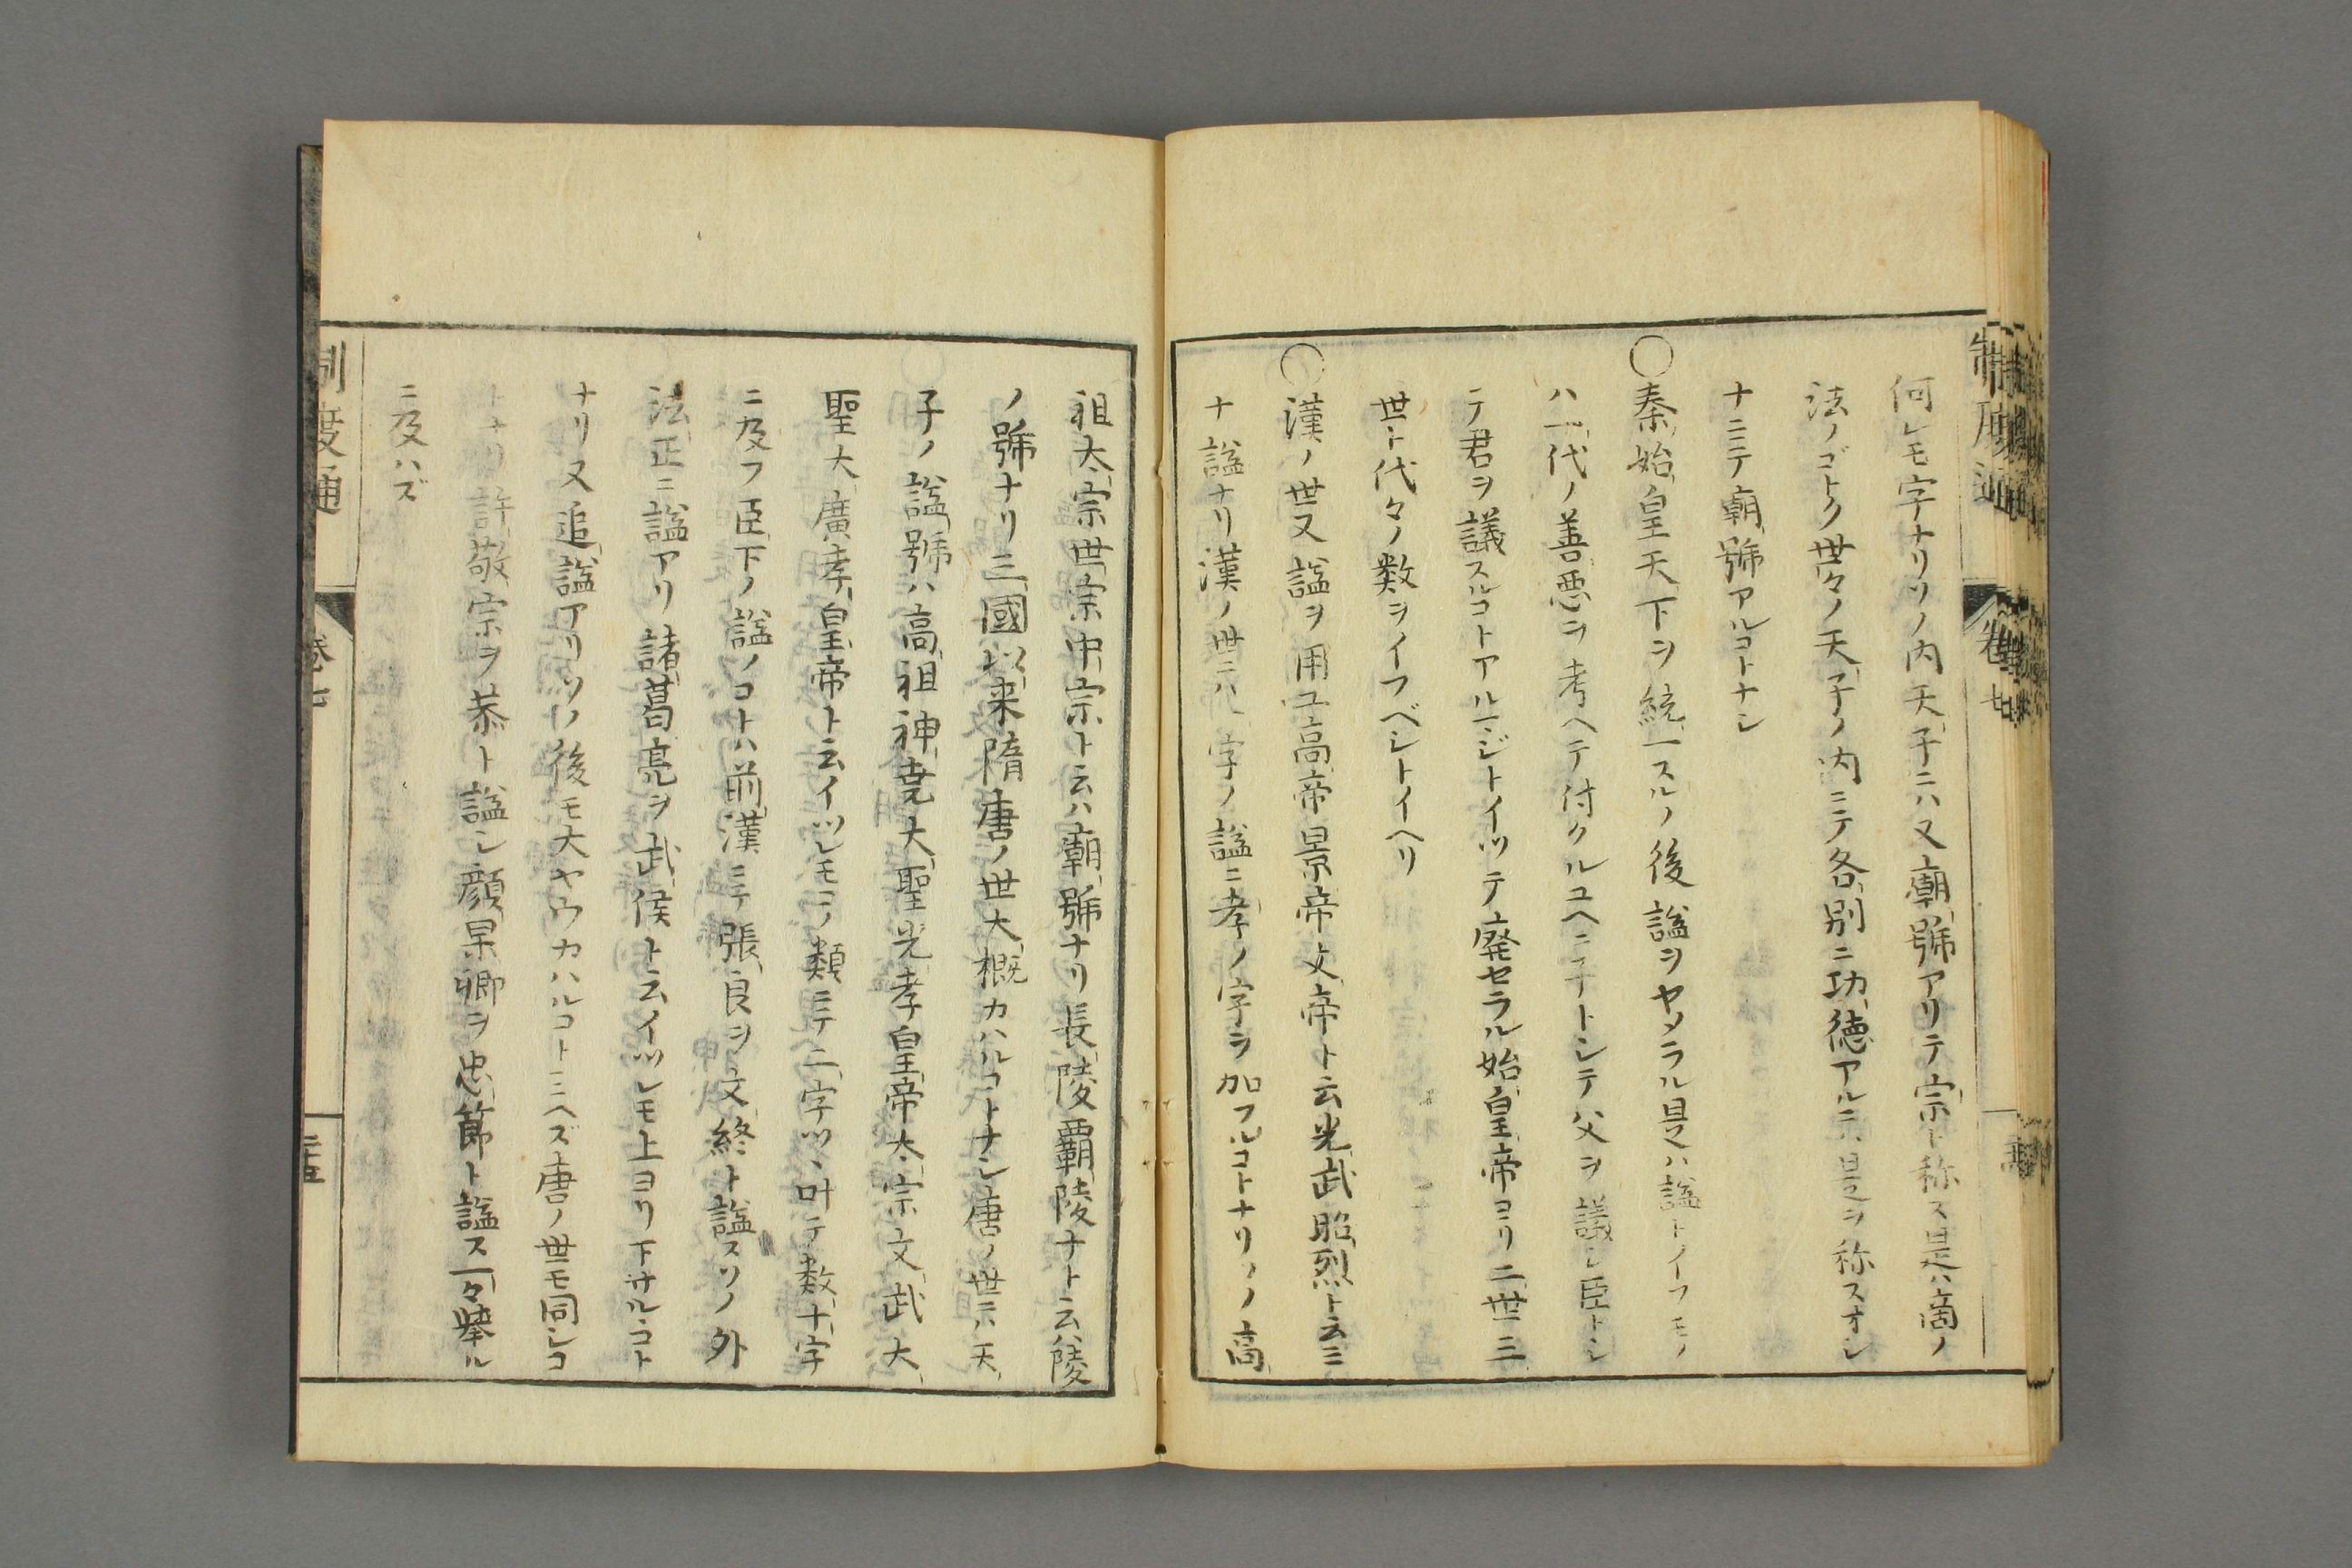 制度通
卷七
何レモ字ナリソノ内天子ニハ又廟號アリテ宗ト称ス是ハ商ノ
法ノゴトク世々ノ天子ノ内ニテ各別ニ功德アルニハ是ヲ称スオシ
ナニテ廟號アルコトナシ
○秦始皇天下ヲ統一スルノ後謚ヲヤメラル是ハ謚トイフモノ
ハ一代ノ善惡ヲ考ヘテ付クルユヘニ子トシテ父ヲ議シ臣トシ
テ君ヲ議スルコトアルマジトイツテ廢セラル始皇帝ヨリ二世三
世ト代々ノ数ヲイフベシトイヘリ
○漢ノ世又謚ヲ用ユ高帝景帝文帝ト云光武昭烈ト云ミ
ナ謚ナリ漢ノ世ニハ一字ノ謚ニ孝ノ字ヲ加フルコトナリソノ高
祖太宗世宗中宗ト云ハ廟號ナリ長陵覇陵ナト云ハ陵
ノ號ナリ三國以来隋唐ノ世大概カハルコトナシ唐ノ世ニハ天
子ノ謚號ハ高祖神堯大聖光孝皇帝太宗文武大
聖大廣孝皇帝ト云イツレモコノ類ニテ二字ツヽ叶テ数十字
ニ及フ臣下ノ謚ノコトハ前漢ニテ張良ヲ文終ト謚スソノ外
法正ニ謚アリ諸葛亮ヲ武侯ト云イツレモ上ヨリ下サルコト
ナリ又追謚アリソノ後モ大ヤウカハルコトミヘズ唐ノ世モ同シコ
トナリ許敬宗ヲ恭ト謚シ顔杲卿ヲ忠節ト謚ス一々擧ル
ニ及ハズ
制度通
卷七
二十五